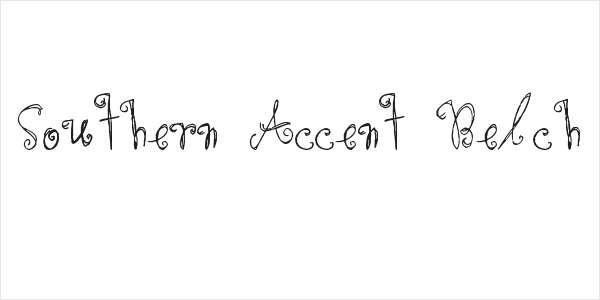 Southern Accent Belch